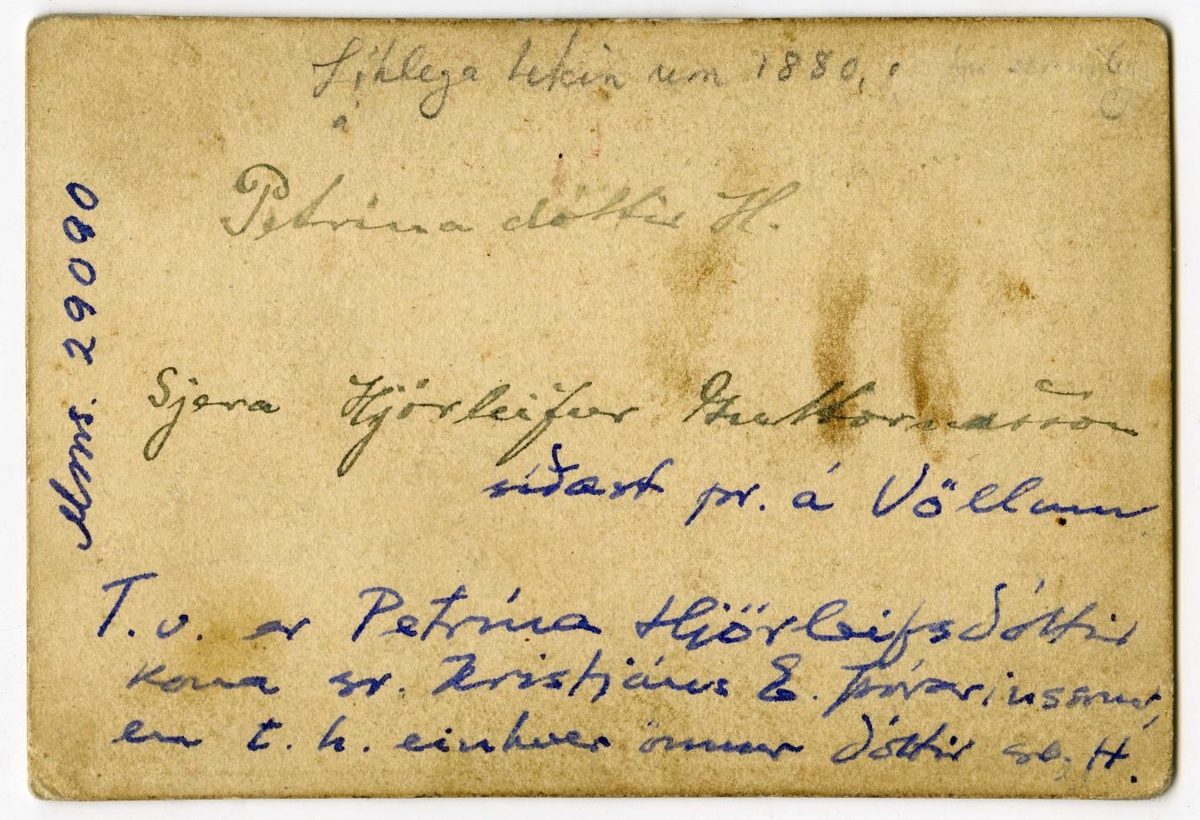 Líklega tekin um 1880,
á
Petrína dóttir H.
Sjera Hjörleifur Guttormsson
síðast pr. á Völlum
T.v. er Petrína Hjörleifsdóttir
kona sr. Kristjáns E. Þórarinssonar,
en t.h. einhver önnur dóttir sr. H.
Mms. 29090